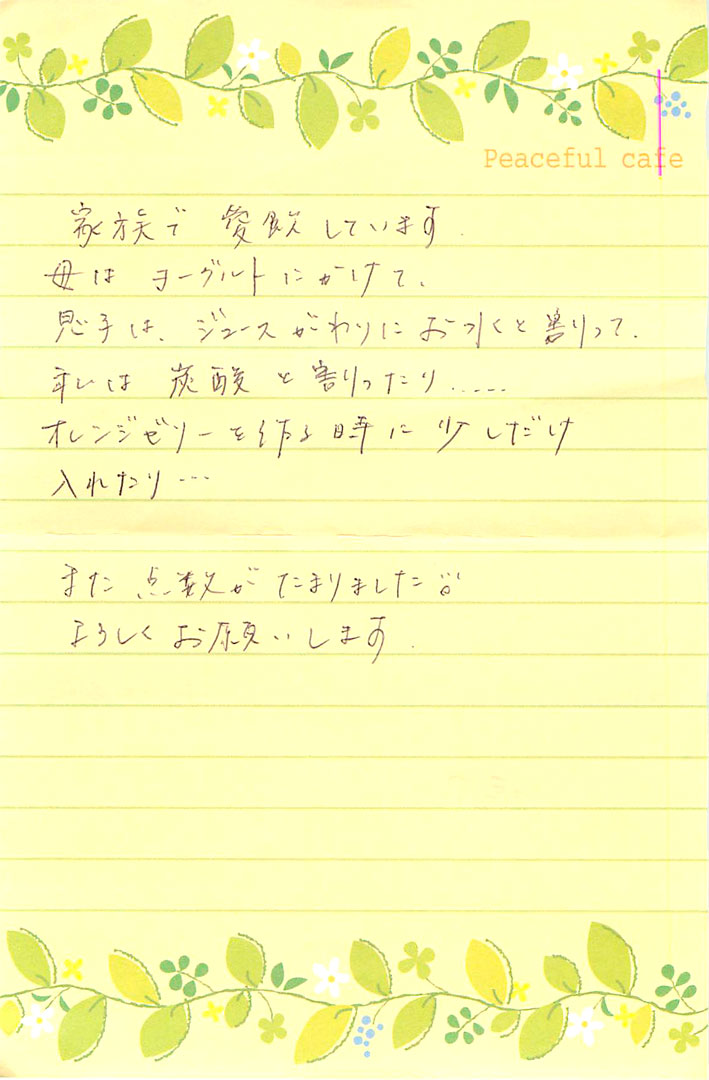 Peaceful cafe
家族で 愛飲しています.
母は ヨーグルトにかけて、
息子は、ジュースがわりにお水くと割りって、
私は 炭酸と割りったり.....
オレンジゼリーを作る時に 少しだけ
入れたり…
また 点数が たまりました
よろしくお願いします.